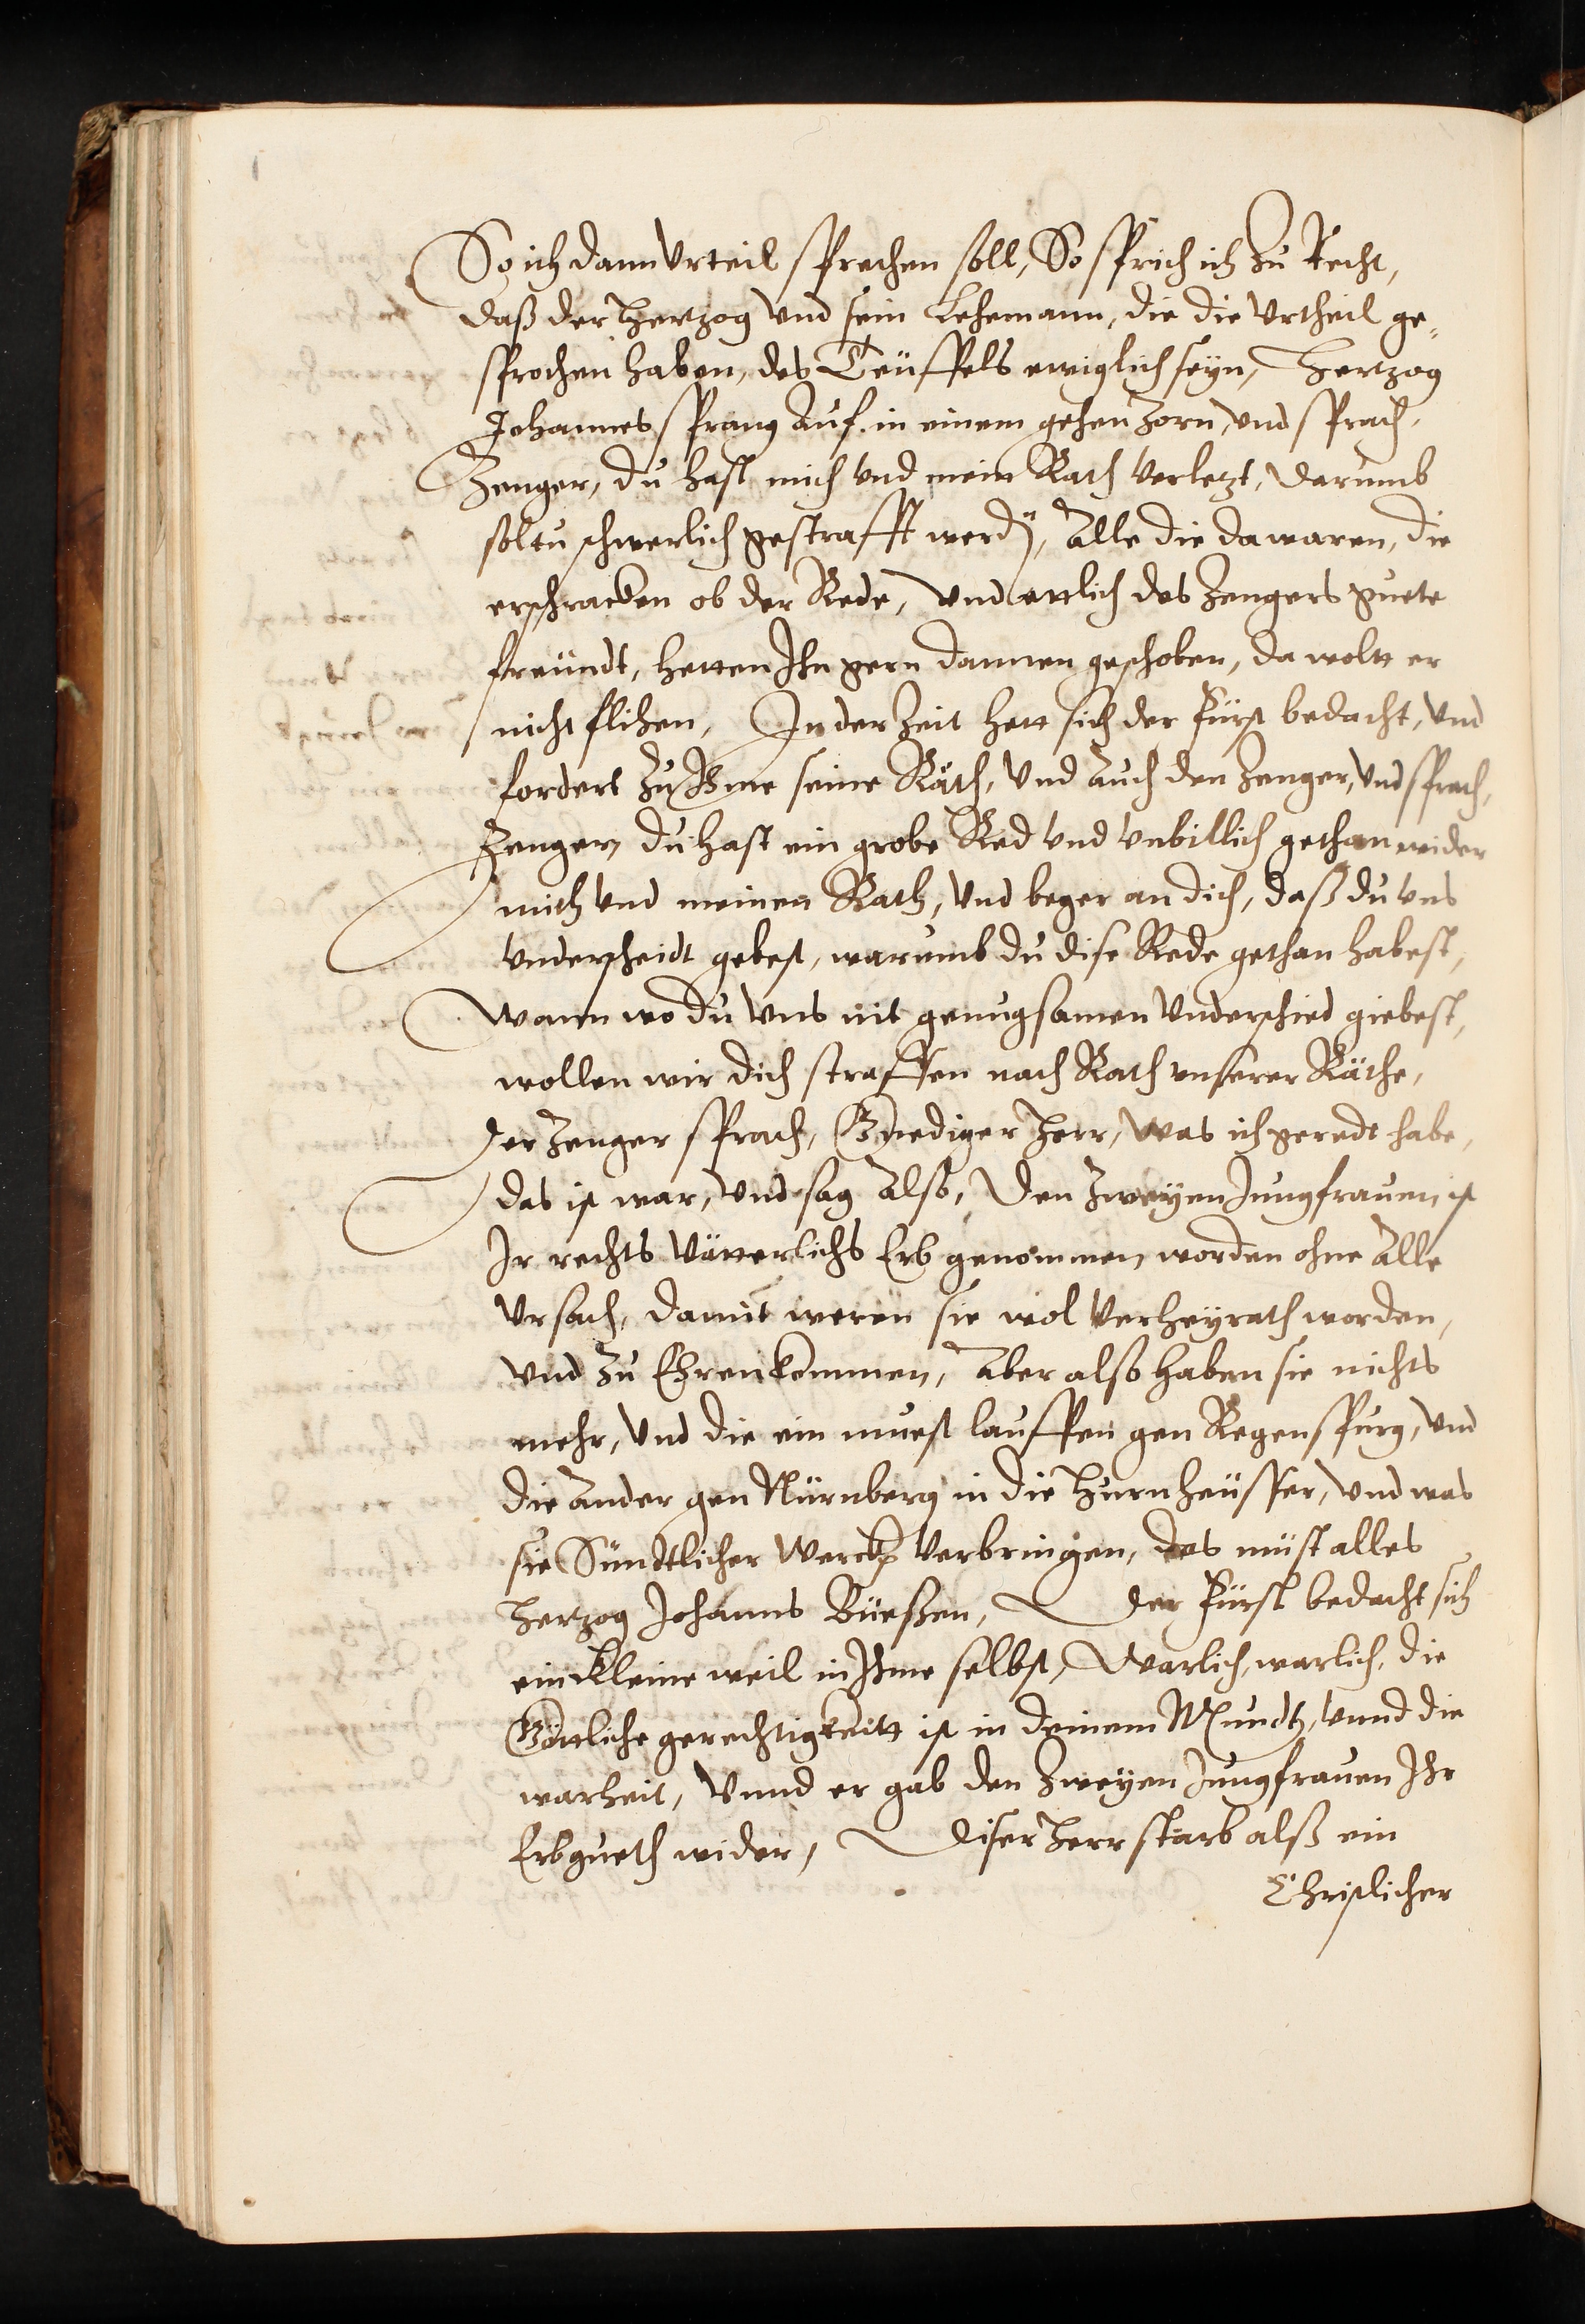 So ich dann Vrteil sprechen soll, So sprich ich zu Recht,
daß der Hertzog vnd sein Lehemann, die die Vrtheil ge„
sprochen haben, des Teüffels ewiglich seyn, Hertzog
Johannes sprang Auf in einem gehen Zorn, vnd sprach,
Zenger, du hast mich vnd mein Rath verletzt, darumb
soltu schwerlich gestrafft werdn, Alle die da waren, die
erschracken ob der Rede, vnd ettlich des Zengers guete
freündt, hetten Ihn gern dannen geschoben, da wolt er
nicht flihen, In der Zeit hett sich der Fürst bedacht, vnd
fordert zu Ihme seine Räth, vnd Auch den Zenger, vnd sprach,
Zenger, du hast ein grobe Red vnd vnbillich gethan wider
mich vnd meinen Rath, vnd beger an dich, daß du vns
vnderscheidt gebest, warumb du dise Rede gethan habest,
Wann wo du vns nit genugsamen vnderschied giebest,
wollen wir dich straffen nach Rath vnserer Räthe,
Der Zenger sprach, Gnediger Herr, was ich geredt habe,
das ist war, vnd sag Also, Den Zweyen Jungfrauen, ist
Ir rechts Vätterlichs Erb genommen worden ohne Alle
Vrsach, damit weren sie wol Verheyrath worden,
vnd zu Ehren kommen, Aber also haben sie nichts
mehr, vnd die ein muest lauffen gen Regenspurg, vnd
die Ander gen Nürnberg in die Hurnheüsser, vnd was
sie Sündtlicher Werckh verbringen, das müst alles
Hertzog Johanns Büeßen, Der Fürst bedacht sich
ein kleine weil in Ihme selbst, Warlich, warlich, die
Göttliche gerechtigkeitt ist in deinem Mundt, vnnd die
warheit, Vnnd er gab den Zweyen Jungfrauen Ihr
Erbgueth wider, Diser Herr starb alß ein
Christlicher